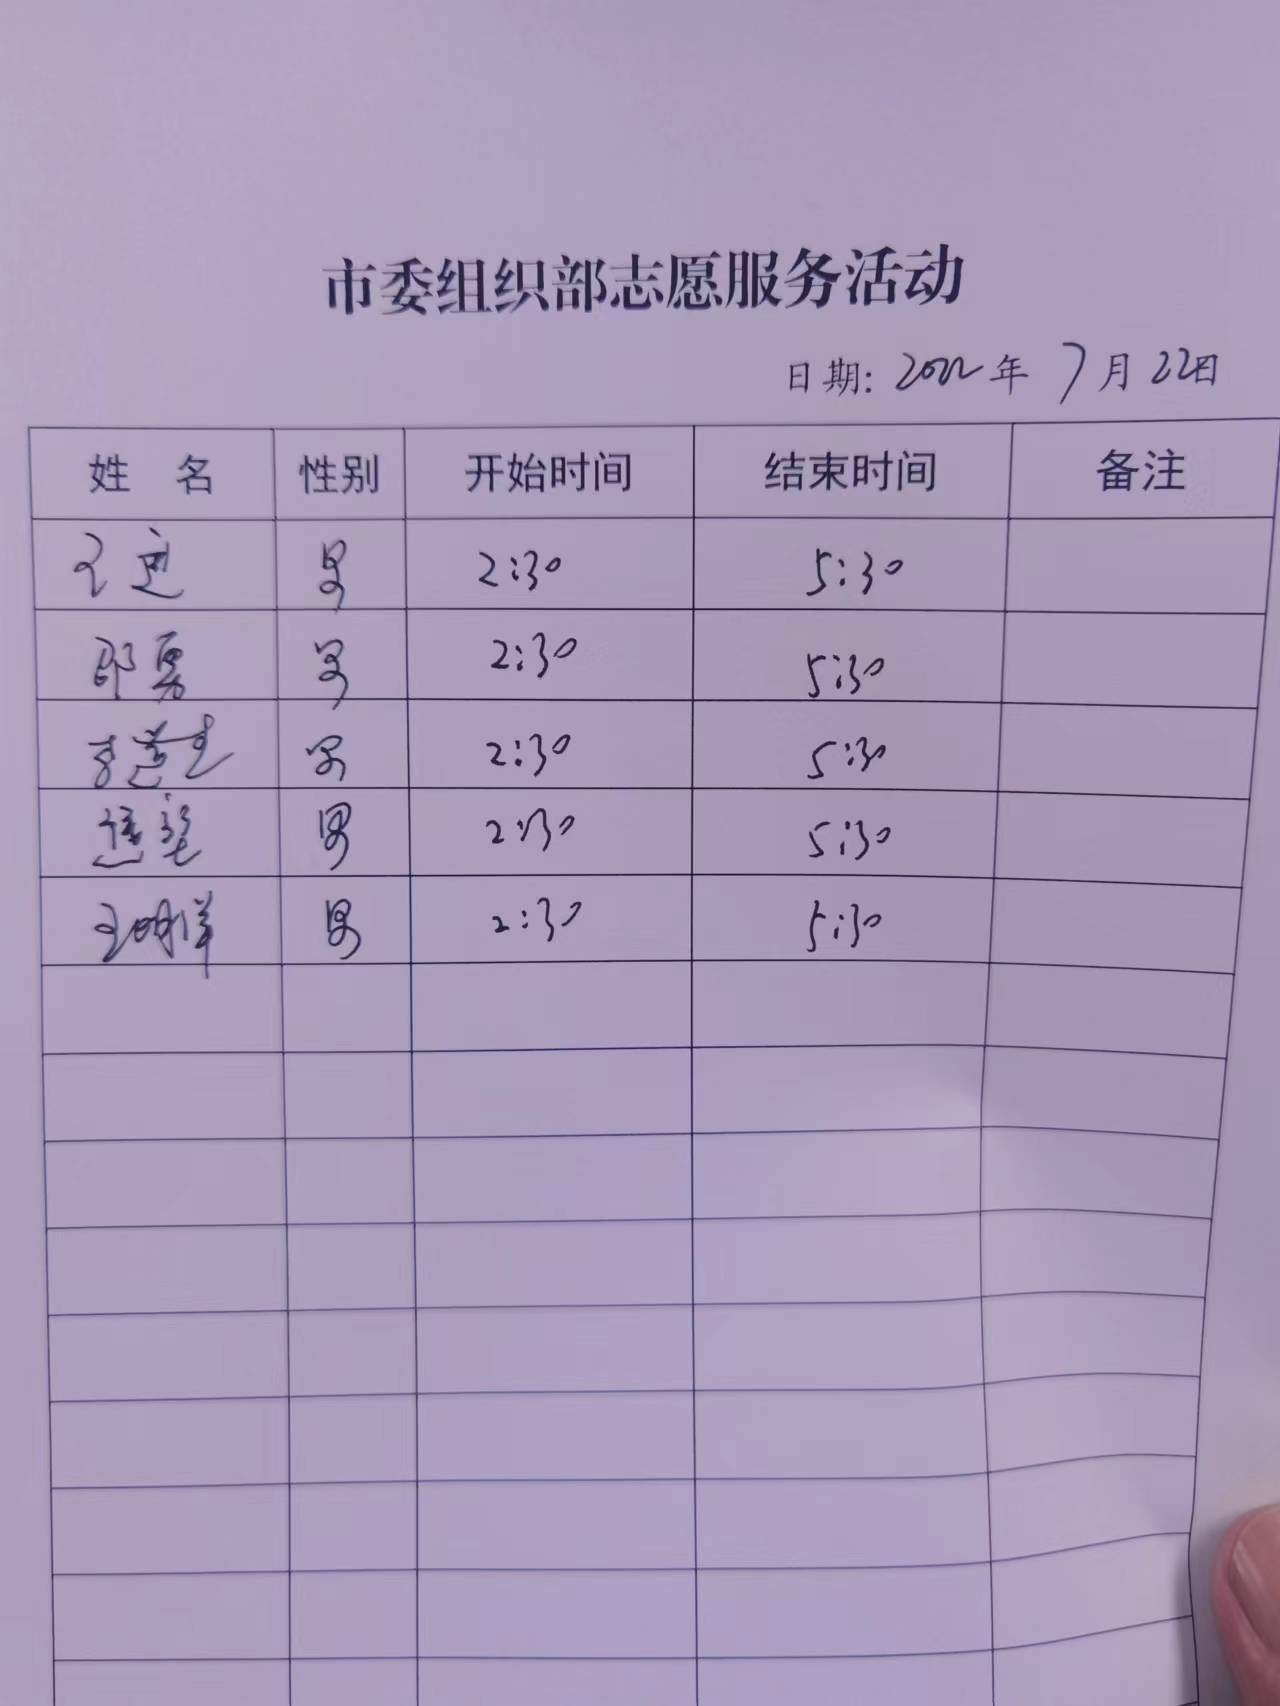 市委组织部志愿服务活动
日期: 2022年 7月 22日
姓 名 性别 开始时间 结束时间 备注
男 2:30 5:30
邵勇 男 2:30 5:30
男 2:30 5:30
男 2:30 5:30
王明洋 男 2:30 5:30